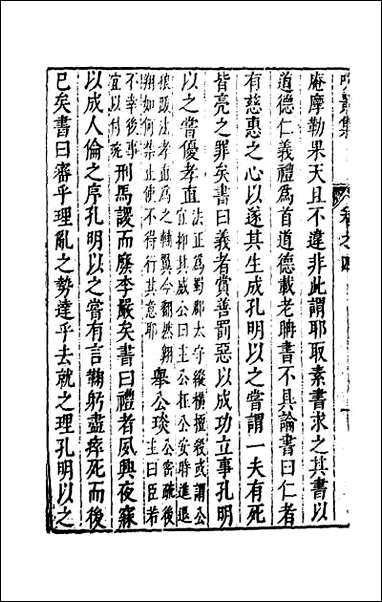 吹景集 卷之四
庵摩勒果天且不違非此謂耶取素書求之其書以
道德仁義禮為首道德載老聃書不具論書曰仁者
有慈惠之心以遂其生成孔明以之嘗謂一夫有死
皆亮之罪矣書曰義者賞善罰惡以成功立事孔明
以之嘗優孝直法正為蜀郡太守縱橫擅殺或謂公宜抑其威公曰主公在公安時進退
狼跋法孝直為之輔翼今翻然翱翔如何禁止使不得行其意耶舉公琰公密疏後主曰臣若
不幸後事宜以付琬刑馬謖而廢李嚴矣書曰禮者夙興夜寐
以成人倫之序孔明以之嘗有言鞠躬盡瘁死而後
已矣書曰審乎理亂之勢達乎去就之理孔明以之